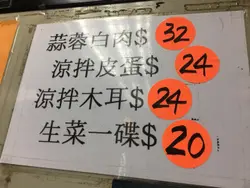 蒜蓉白肉$ 32
涼拌皮蛋$ 24
涼拌木耳$ 24
生菜一碟$ 20